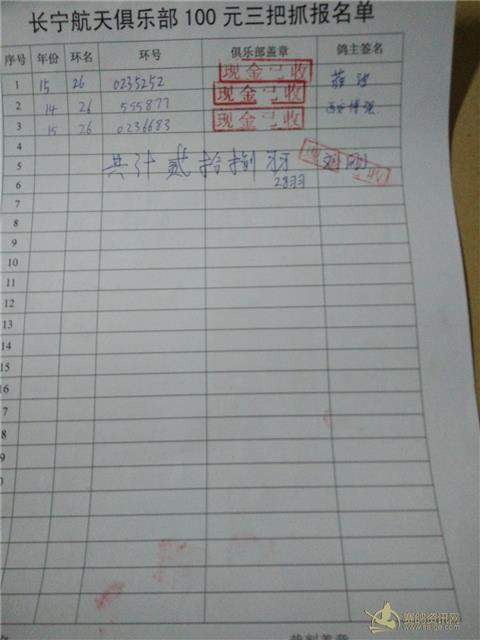 长宁航天俱乐部100元三把抓报名单
序号 年份 环名 环号 俱乐部盖章 鸽主签名
1 15 26 0235252 现金已收
2 14 26 555877 现金已收
3 15 26 0236683 现金已收
4
5 共计贰拾捌羽 现 收
6 28羽
7
8
9
10
11
12
13
14
15
16
7
8
9
0
裁判盖章
赛鸽资讯网
www.saige.com